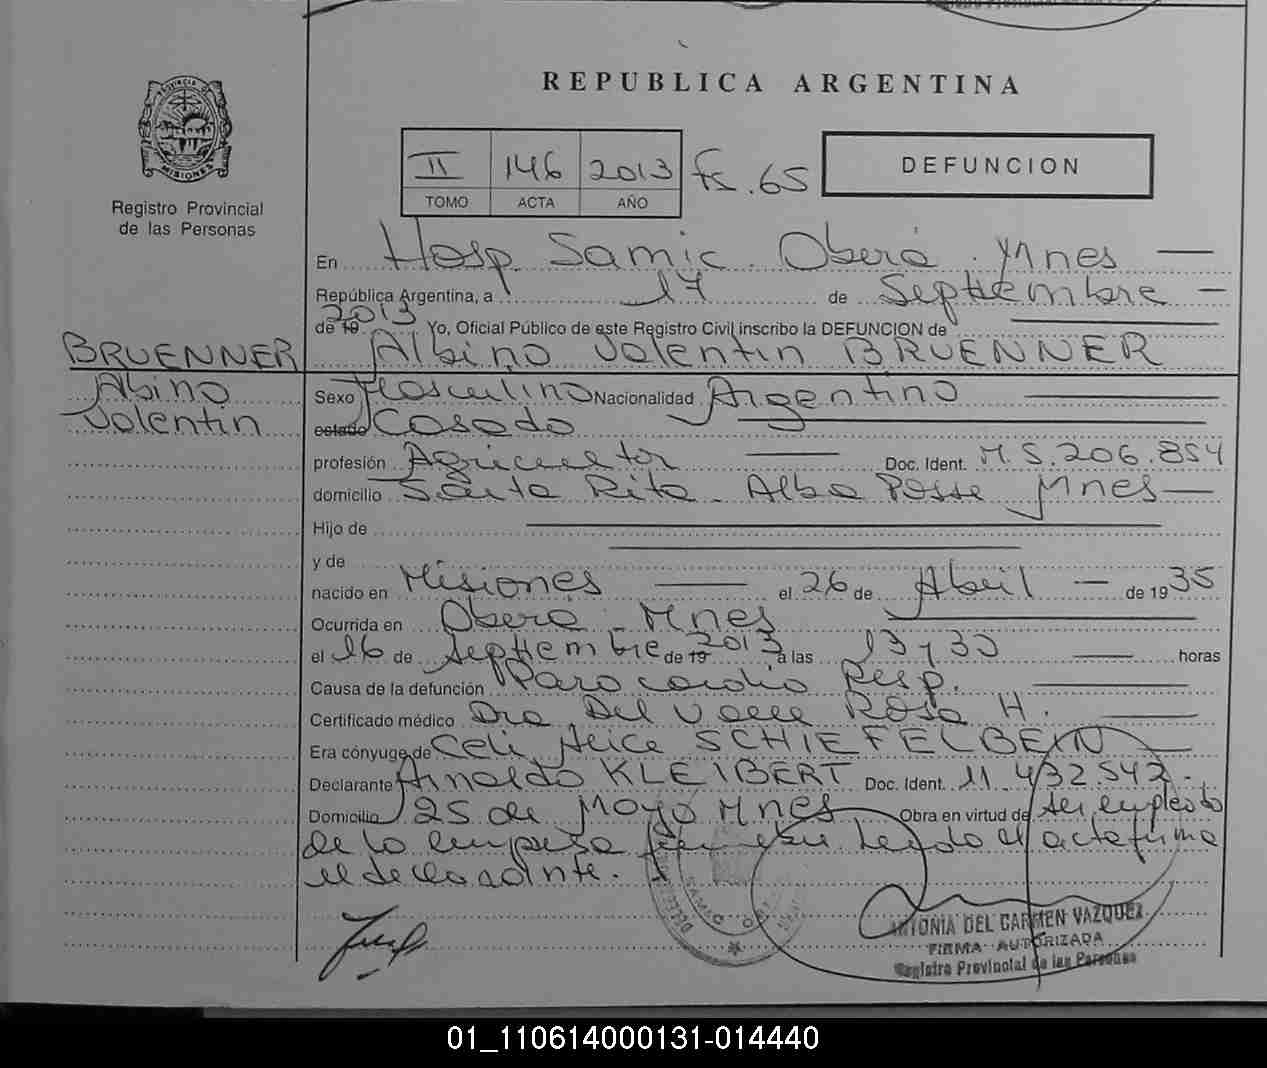 REPUBLICA ARGENTINA
PROVINCIA DE
MISIONES
Registro Provincial
de las Personas
II 146 2013 Fs. 65
TOMO ACTA AÑO
DEFUNCION
En Hosp. Samic. Oberá. Mnes
República Argentina, a 17 de Septiembre
de 19 2013 Yo, Oficial Público de este Registro Civil inscribo la DEFUNCION de
BRUENNER Albino Valentin BRUENNER
Albino
Valentin
Sexo Masculino Nacionalidad Argentino
estado Casado
profesión Agricultor Doc. Ident. M.5.206.854
domicilio Santa Rita. Alba Posse Mnes
Hijo de
y de
nacido en Misiones el 26 de Abril de 1935
Ocurrida en Oberá. Mnes
el 16 de Septiembre de 19 2013 a las 13 y 30 horas
Causa de la defunción Paro cardio Resp.
Certificado médico Dra. Del Valle Rosa H.
Era cónyuge de Celi Alice SCHIEFELBEIN
Declarante Arnoldo KLEIBERT Doc. Ident. 11.432.542.
Domicilio 25 de Mayo Mnes Obra en virtud de ser empleado
de la empresa funebre Leido el acta firma
el declarante.
ANTONIA DEL CARMEN VAZQUEZ
FIRMA AUTORIZADA
Registro Provincial de las Personas
01_110614000131-014440